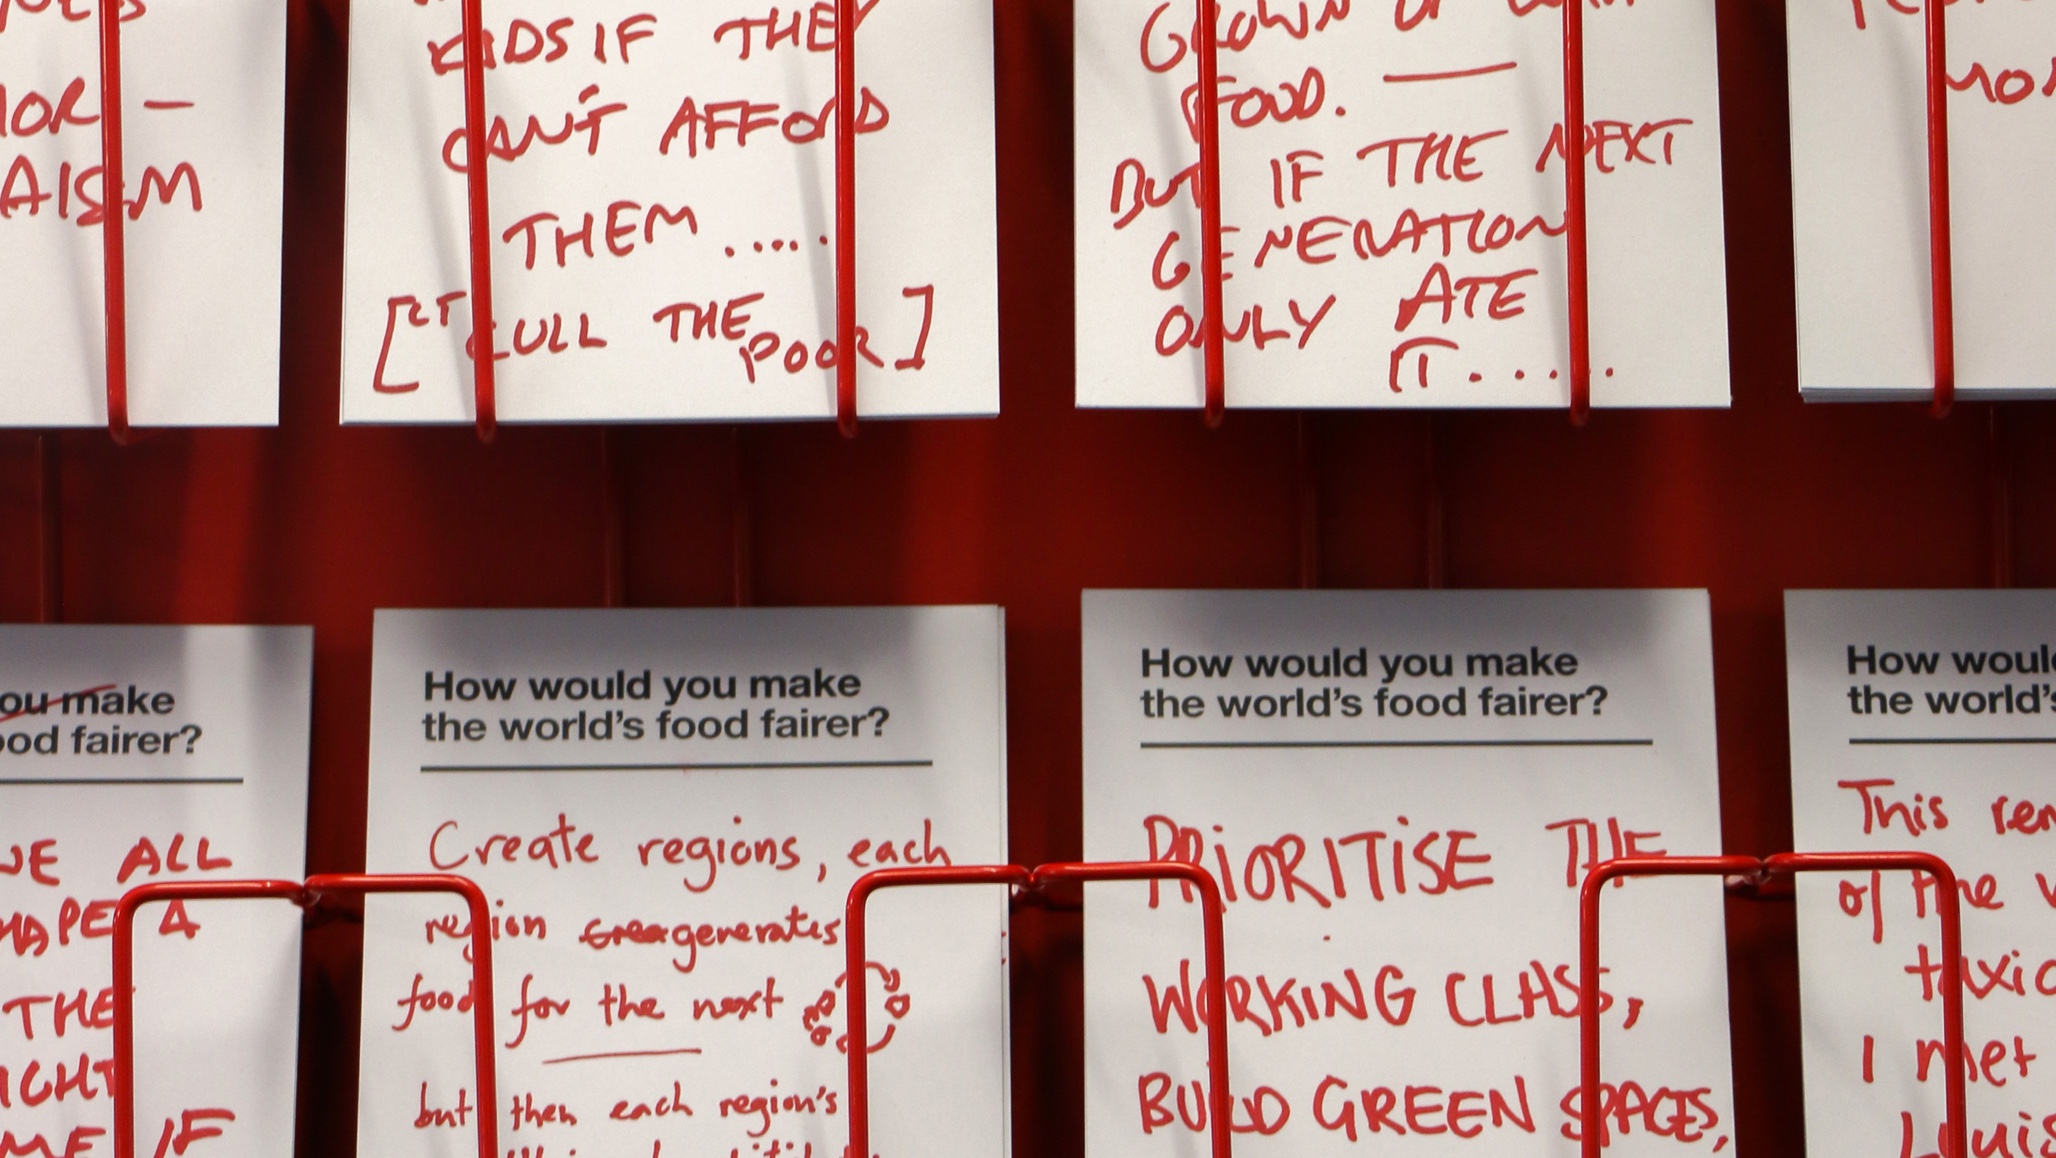 KIDS IF THEY
CAN'T AFFORD
THEM .....
CULL THE
POOR]
GROWN UP WITH
FOOD.
BUT IF THE NEXT
GENERATION
ONLY ATE
IT.....
ou make
ood fairer?
WE ALL
SHAPE A
THE
IGHT
ME IF
How would you make
the world's food fairer?
Create regions, each
region generates
food for the next
but then each region's
How would you make
the world's food fairer?
PRIORITISE THE
WORKING CLASS,
BUILD GREEN SPACES,
How would
the world's
This
of the
I met
Louis